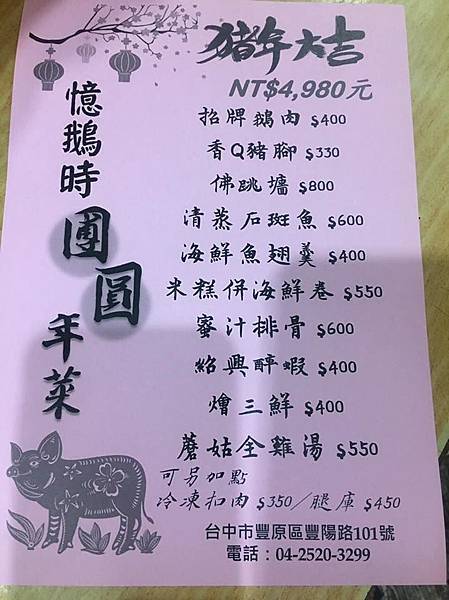 豬年大吉
NT$4,980元
憶鵝時
團圓
年菜
招牌鵝肉 $400
香Q豬腳 $330
佛跳墻 $800
清蒸石斑魚 $600
海鮮魚翅羹 $400
米糕併海鮮卷 $550
蜜汁排骨 $600
紹興醉蝦 $400
燴三鮮 $400
蘑菇全雞湯 $550
可另加點
冷凍扣肉 $350/腿庫 $450
台中市豐原區豐陽路101號
電話：04-2520-3299